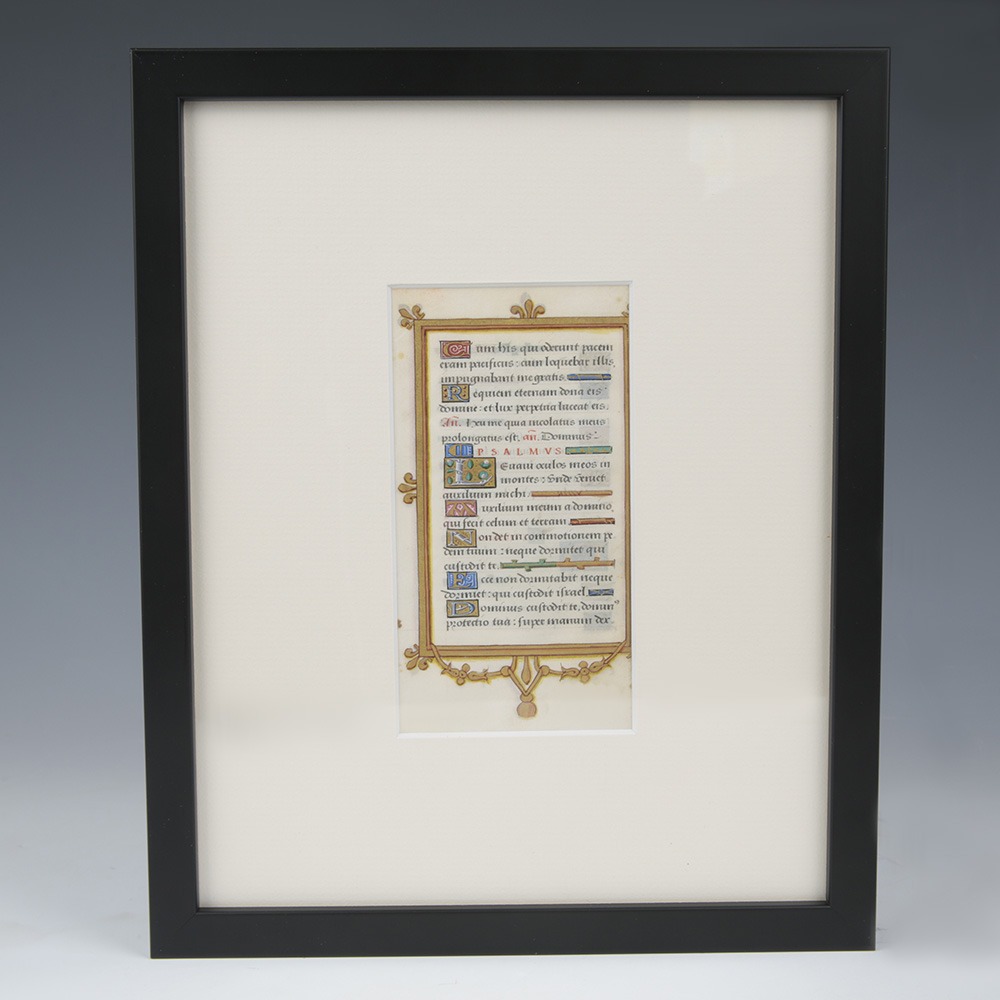 Cum his qui oderunt pacem
eram pacificus : cum loquebar illis,
impugnabant me gratis.
Requiem eternam dona eis
domine : et lux perpetua luceat eis.
Añ. Heu me quia incolatus meus
prolongatus est. añ. Dominus
PSALMVS
Leuaui oculos meos in
montes : vnde veniet
auxilium michi
Auxilium meum a domino,
qui fecit celum et terram.
Non det in commotionem pe
dem tuum : neque dormitet qui
custodit te.
Ecce non dormitabit neque
dormiet : qui custodit israel.
Dominus custodit te, domin⁹
protectio tua : super manum dex